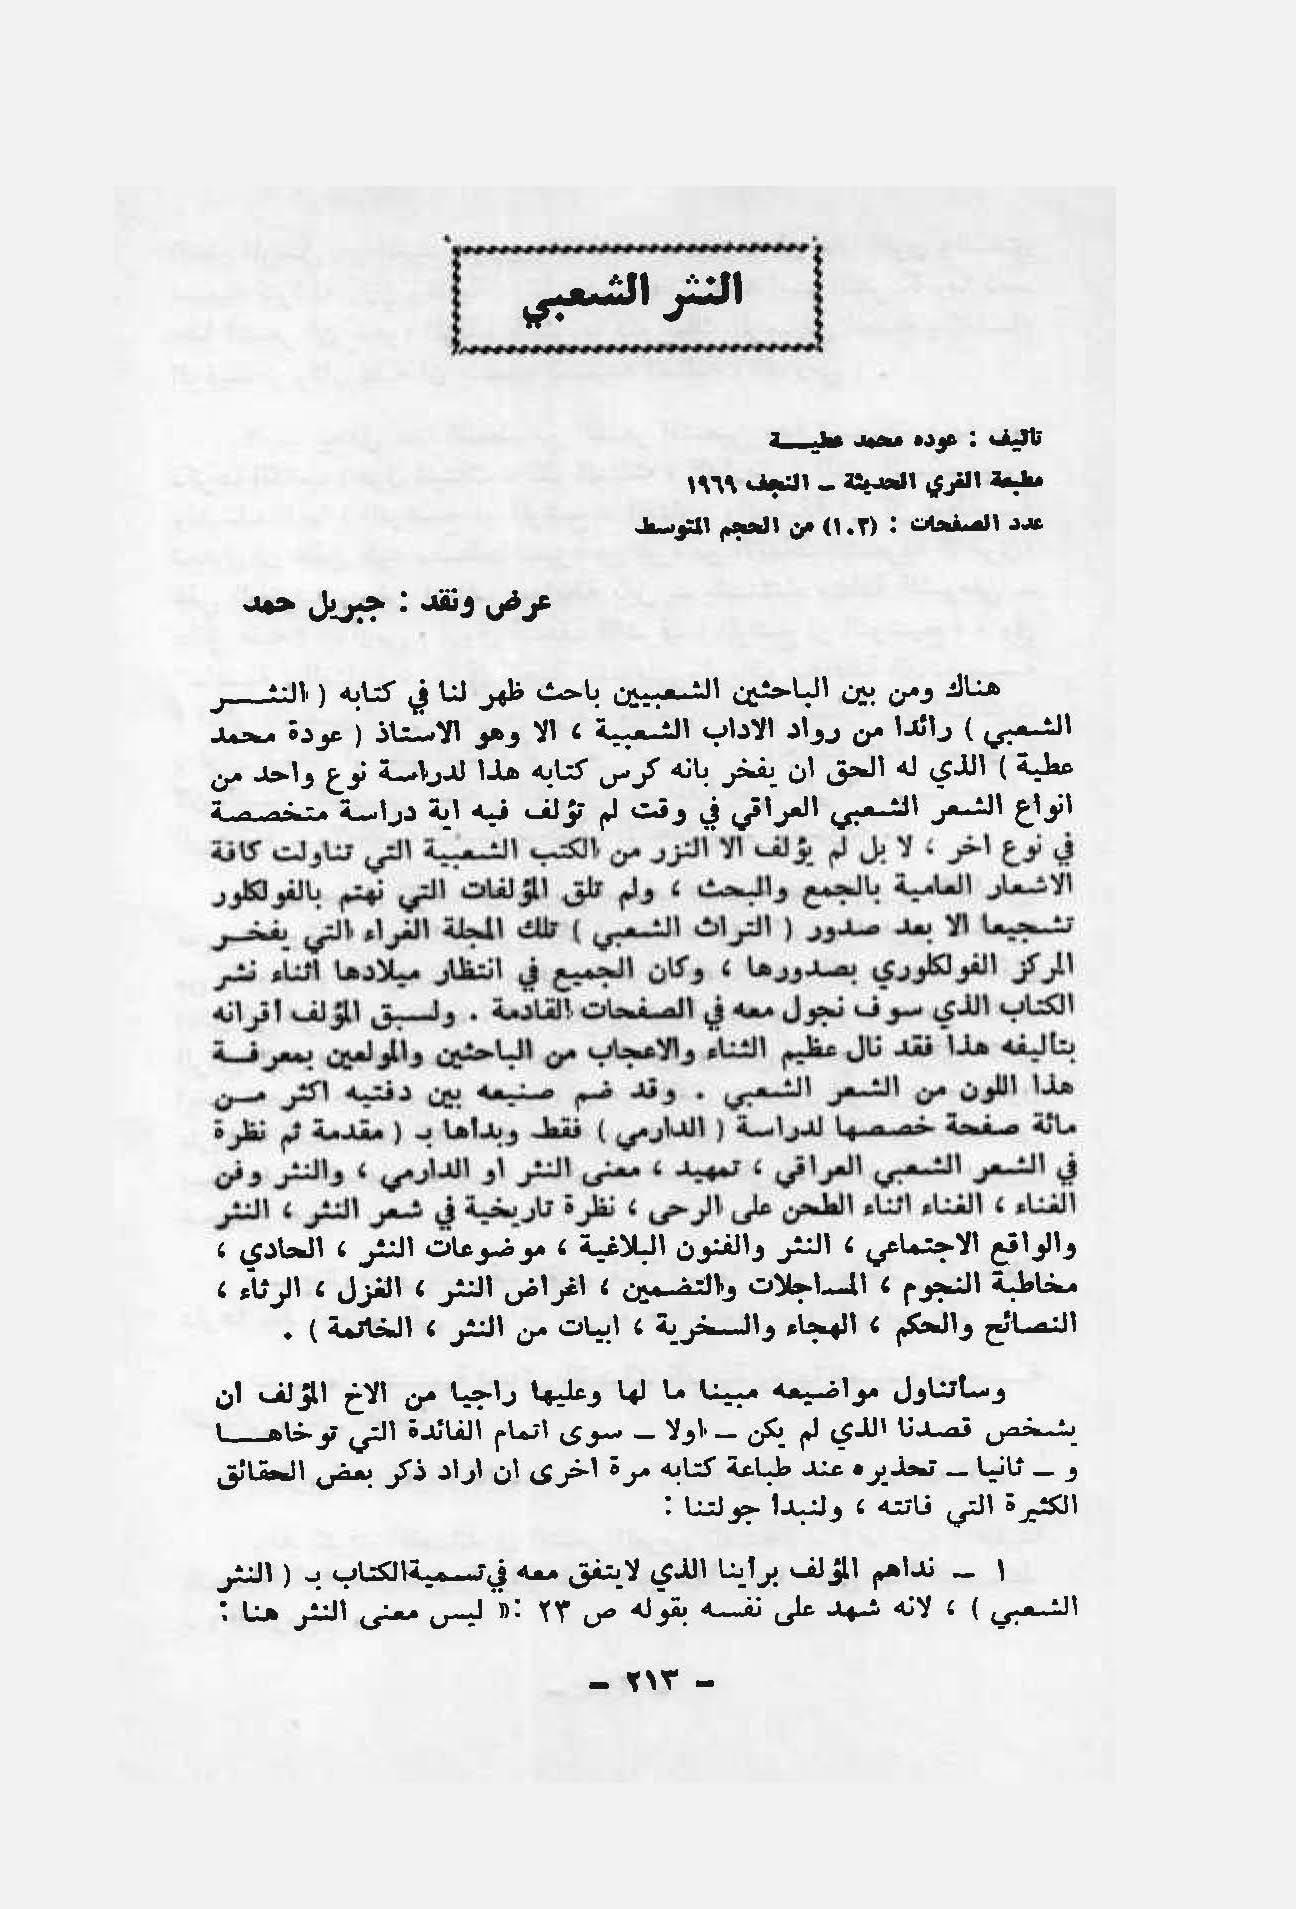 النثر الشعبي
تاليف : عوده محمد عطيـــة
مطبعة الغري الحديثة – النجف ١٩٦٩
عدد الصفحات : (١٠٣) من الحجم المتوسط
عرض ونقد : جبريل حمد
هناك ومن بين الباحثين الشعبيين باحث ظهر لنا في كتابه ( النثـــر
الشعبي ) رائدا من رواد الاداب الشعبية ، الا وهو الاستاذ ( عودة محمد
عطية ) الذي له الحق ان يفخر بانه كرس كتابه هذا لدراسة نوع واحد من
انواع الشعر الشعبي العراقي في وقت لم تؤلف فيه اية دراسة متخصصة
في نوع اخر ، لا بل لم يؤلف الا النزر من الكتب الشعبية التي تناولت كافة
الاشعار العامية بالجمع والبحث ، ولم تلق المؤلفات التي نهتم بالفولكلور
تشجيعا الا بعد صدور ( التراث الشعبي ) تلك المجلة الغراء التي يفخــر
المركز الفولكلوري بصدورها ، وكان الجميع في انتظار ميلادها اثناء نشر
الكتاب الذي سوف نجول معه في الصفحات القادمة . ولسبق المؤلف أقرانه
بتأليفه هذا فقد نال عظيم الثناء والاعجاب من الباحثين والمولعين بمعرفــة
هذا اللون من الشعر الشعبي . وقد ضم صنيعه بين دفتيه اكثر مــن
مائة صفحة خصصها لدراسة ( الدارمي ) فقط وبدأها بـ ( مقدمة ثم نظرة
في الشعر الشعبي العراقي ، تمهيد ، معنى النثر او الدارمي ، والنثر وفن
الغناء ، الغناء اثناء الطحن على الرحى ، نظرة تاريخية في شعر النثر ، النثر
والواقع الاجتماعي ، النثر والفنون البلاغية ، موضوعات النثر ، الحادي ،
مخاطبة النجوم ، المساجلات والتضمين ، اغراض النثر ، الغزل ، الرثاء ،
النصائح والحكم ، الهجاء والسخرية ، ابيات من النثر ، الخاتمة ) .
وسأتناول مواضيعه مبينا ما لها وعليها راجيا من الاخ المؤلف ان
يشخص قصدنا الذي لم يكن – اولا – سوى اتمام الفائدة التي توخاهـــا
و – ثانيا – تحذيره عند طباعة كتابه مرة اخرى ان اراد ذكر بعض الحقائق
الكثيرة التي فاتته ، ولنبدأ جولتنا :
١ – نداهم المؤلف برأينا الذي لايتفق معه في تسمية الكتاب بـ ( النثر
الشعبي ) ، لانه شهد على نفسه بقوله ص ٢٣ :« ليس معنى النثر هنا :
– ٢١٣ –